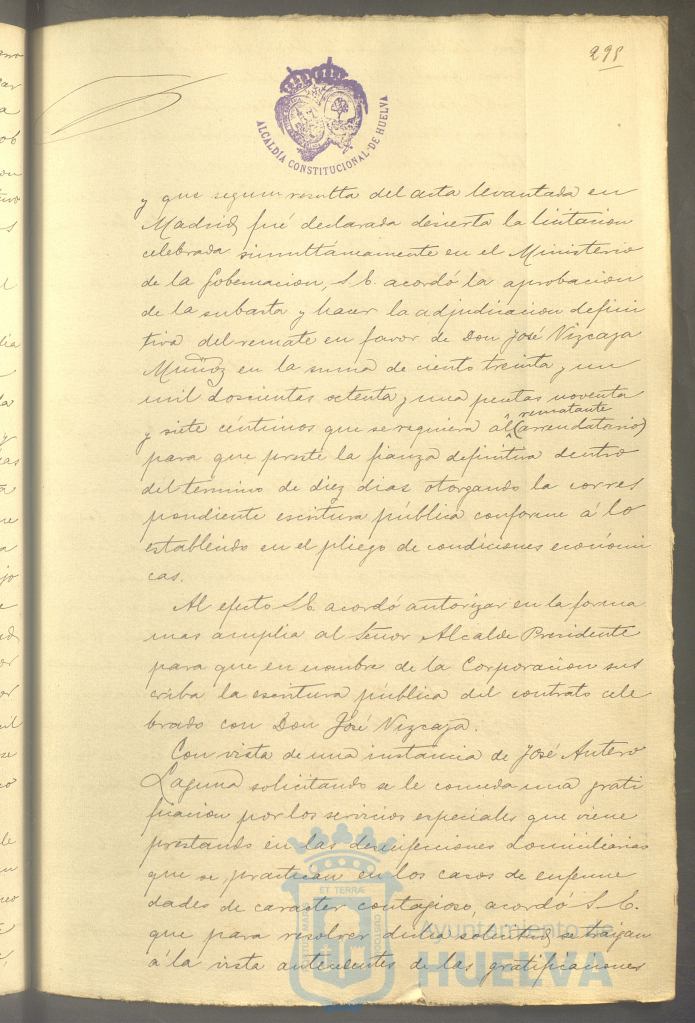 298
ALCALDÍA CONSTITUCIONAL DE HUELVA
y que segun resulta del acta levantada en
Madrid, fué declarada desierta la licitacion
celebrada simultáneamente en el Ministerio
de la Gobernacion, S.E. acordó la aprobacion
de la subasta y hacer la adjudicacion defini
tiva del remate en favor de Don José Vizcaya
Muñoz en la suma de ciento treinta y un
mil doscientas setenta y una pesetas noventa
rematante
y siete céntimos que se requiera al (arrendatario)
para que preste la fianza definitiva dentro
del término de diez dias otorgando la corres
pondiente escritura pública conforme á lo
establecido en el pliego de condiciones económi
cas.
Al efecto S.E. acordó autorizar en la forma
mas amplia al Señor Alcalde Presidente
para que en nombre de la Corporacion sus
criba la escritura pública del contrato cele
brado con Don José Vizcaya.
Con vista de una instancia de José Antero
Laguna solicitando se le conceda una grati
ficacion por los servicios especiales que viene
prestando en las desinfecciones domiciliarias
que se practican en los casos de enferme
dades de caracter contagioso, acordó S.E.
que para resolver dicha solicitud, se traigan
á la vista antecedentes de las gratificaciones
Ayuntamiento de
HUELVA